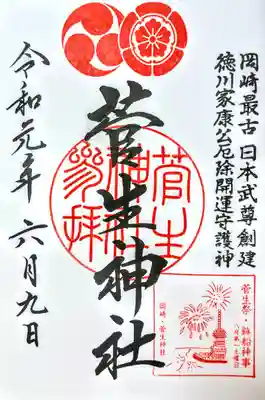 岡崎最古 日本武尊創建
徳川家康公厄除開運守護神
菅生神社
令和元年 六月九日
菅生神社参拝
菅生祭・鉾船神事
八月第一土曜日
岡崎・菅生神社